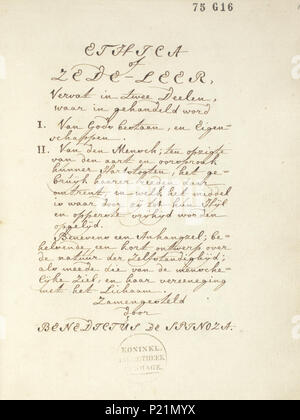 75 G16
ETHICA
of
ZEDE-LEER,
Vervat in twee Deelen,
waar in gehandeld word
I. Van Gods bestaan, en Eigen-
schappen.
II. Van den Mensch; ten opzigte
van den aart en oorspronk
hunner Hartstogten, het ge-
bruijk haarer reeden daar
omtrent, en welk het middel
is waar door zij tot hun Heijl
en opperste vrijheid worden
opgeleijd.
Benevens een Anhangzel; be-
helsende een kort ontwerp over
de natuur der Zelfstandigheijd;
als meede die van de mensche-
lijke Ziel, en haar vereeniging
met het Lichaam.
Zamengesteld
door
BENEDICTUS DE SPINOZA.
KONINKL.
BIBLIOTHEEK
HAGE.
alamy
Image ID: P21MYX
www.alamy.com